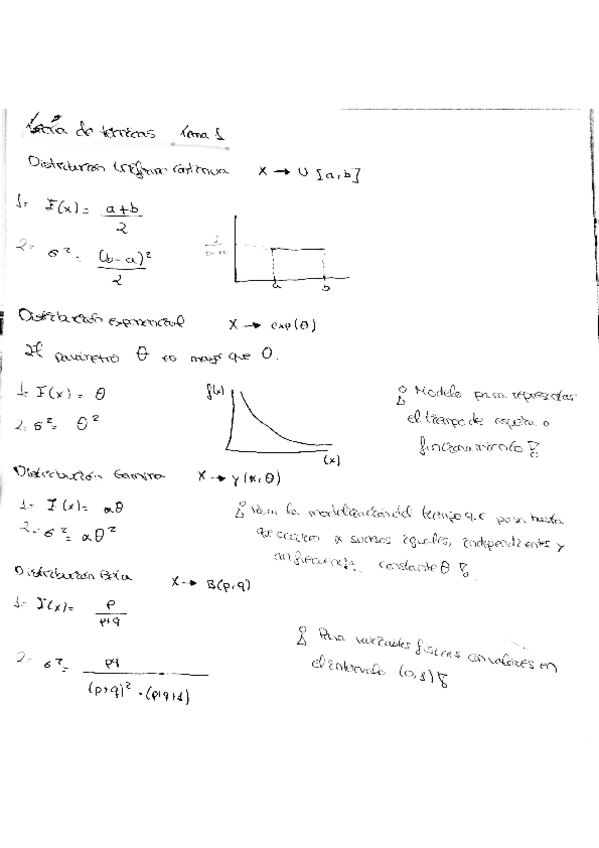 de técnicas Tema 1
Distribución Uniforme Continua X → U [a,b]
1- E(x) = a+b / 2
2- σ² = (b-a)² / 2
1 / b-a
a b
Distribución exponencial X → exp(θ)
El parámetro θ es mayor que 0.
1- E(x) = θ
2- σ² = θ²
f(x)
(x)
Modelo para representar
el tiempo de espera o
funcionamiento
Distribución Gamma X → γ(α,θ)
1- E(x) = αθ
2- σ² = αθ²
Para la modelización del tiempo que pasa hasta
que ocurren α sucesos iguales, independientes y
con frecuencia constante θ
Distribución Beta X → B(p,q)
1- E(x) = p / p+q
2- σ² = pq / (p+q)² · (p+q+1)
Para variables físicas con valores en
el intervalo (0,1)